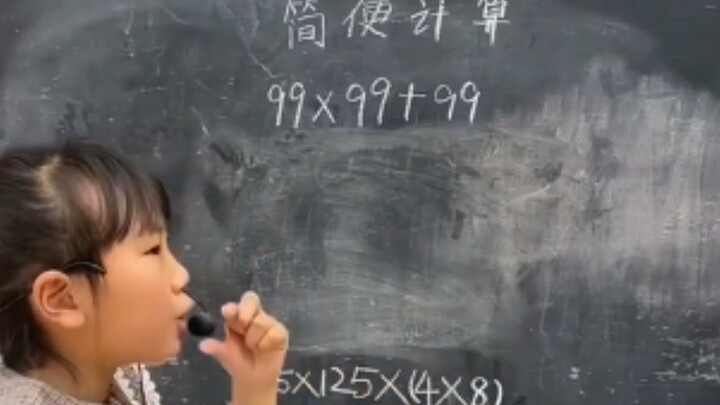 简便计算
99×99+99
5×125×(4×8)